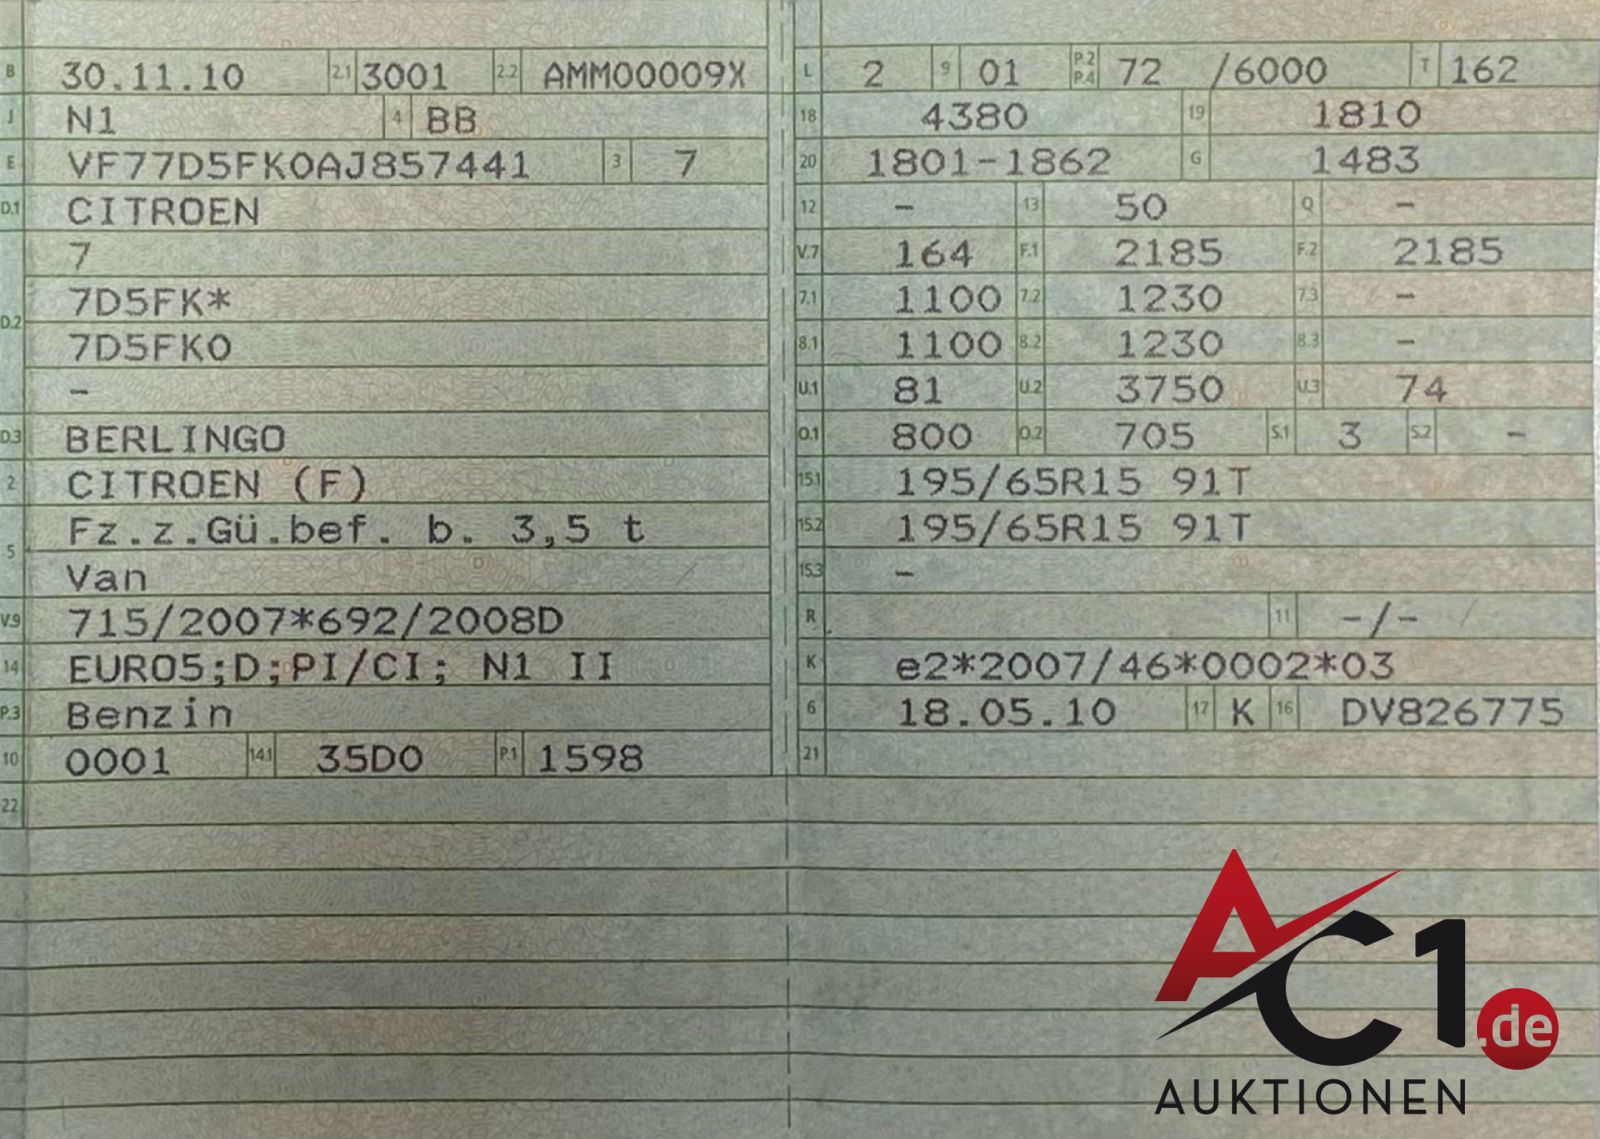 B 30.11.10 2.1 3001 2.2 AMM00009X
J N1 4 BB
E VF77D5FK0AJ857441 3 7
D.1 CITROEN
7
D.2 7D5FK*
7D5FK0
-
D.3 BERLINGO
2 CITROEN (F)
5 Fz.z.Gü.bef. b. 3,5 t
Van
V.9 715/2007*692/2008D
14 EURO5;D;PI/CI; N1 II
P.3 Benzin
10 0001 14.1 35D0 P.1 1598
22
L 2 9 01 P.2 P.4 72 /6000 T 162
18 4380 19 1810
20 1801-1862 G 1483
12 - 13 50 Q -
V.7 164 F.1 2185 F.2 2185
7.1 1100 7.2 1230 7.3 -
8.1 1100 8.2 1230 8.3 -
U.1 81 U.2 3750 U.3 74
O.1 800 O.2 705 S.1 3 S.2 -
15.1 195/65R15 91T
15.2 195/65R15 91T
15.3 -
R 11 -/-
K e2*2007/46*0002*03
6 18.05.10 17 K 16 DV826775
21
AC1.de
AUKTIONEN